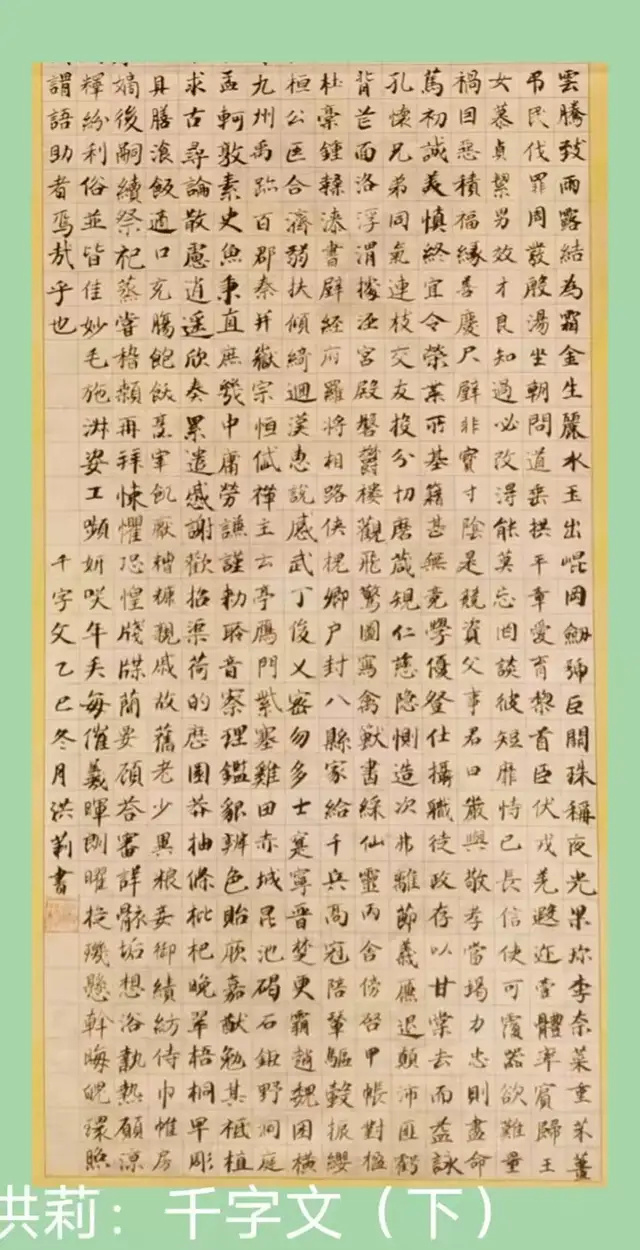 雲騰致雨露結為霜金生麗水玉出崐岡劒號巨闕珠稱夜光果珍李奈菜重芥薑
弔民伐罪周發殷湯坐朝問道垂拱平章愛育黎首臣伏戎羌遐迩壹體率賓歸王
女慕貞絜男效才良知過必改得能莫忘罔談彼短靡恃己長信使可覆器欲難量
禍因惡積福緣善慶尺璧非寶寸陰是競資父事君曰嚴與敬孝當竭力忠則盡命
篤初誠美慎終宜令榮業所基籍甚無竟學優登仕攝職從政存以甘棠去而益詠
孔懷兄弟同氣連枝交友投分切磨箴規仁慈隱惻造次弗離節義廉退顛沛匪虧
背芒面洛浮渭據涇宮殿磐鬱樓觀飛驚圖寫禽獸畫綵仙靈丙舍傍啓甲帳對楹
杜稾鍾隸漆書壁經府羅將相路俠槐卿戶封八縣家給千兵高冠陪輦驅轂振纓
桓公匡合濟弱扶傾綺迴漢惠說感武丁俊乂密勿多士寔寧晉楚更霸趙魏困橫
九州禹跡百郡秦并嶽宗恒岱禪主云亭鴈門紫塞雞田赤城昆池碣石鉅野洞庭
孟軻敦素史魚秉直庶幾中庸勞謙謹勑聆音察理鑑貌辨色貽厥嘉猷勉其祗植
求古尋論散慮逍遙欣奏累遣慼謝歡招渠荷的歷園莽抽條枇杷晚翠梧桐早彫
具膳湌飯適口充腸飽飫烹宰飢厭糟糠親戚故舊老少異糧妾御績紡侍巾帷房
嫡後嗣續祭祀蒸嘗稽顙再拜悚懼恐惶牋牒簡要顧答審詳骸垢想浴執熱願涼
釋紛利俗並皆佳妙毛施淑姿工顰妍笑年矢每催羲暉朗曜旋璣懸斡晦魄環照
謂語助者焉哉乎也 千字文乙巳冬月洪莉書
洪莉：千字文（下）